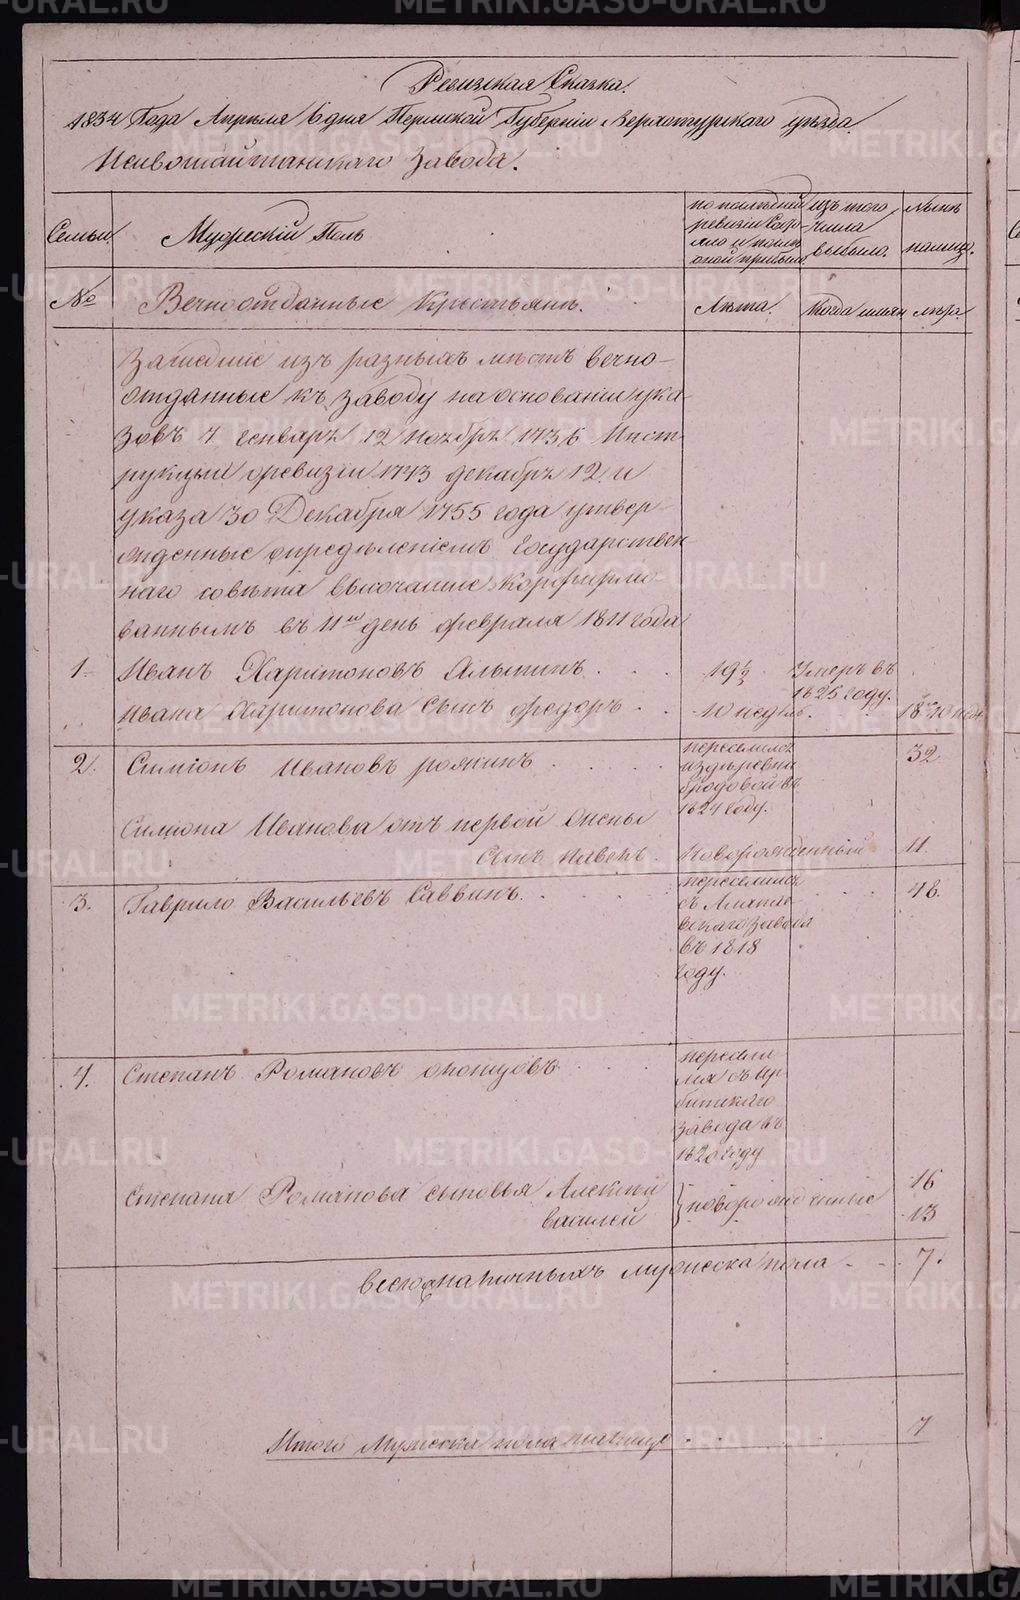 Ревизская Сказка.
1834 Года Апреля 6 дня Пермской Губернии Верхотурского уезда.
Нейвошайтанского Завода.
Семьи. Мужескій Полъ
по последней ревизіи Состояло и после оной прибыло
изъ того числа выбыло.
Ныне налицо.
№ Вечноотданные Крестьяне. Лета. Когда имянно лета.
Зашедшіе изъ разныхъ местъ вечно-
отданные къ заводу на основаніи ука
зовъ 7 генваря 12 ноября 1736 Инст
рукцыи оревизіи 1743 декабря 12 и
указа 30 Декабря 1755 года утвер-
жденные определеніемъ Государствен
наго совета высочайше Конфирмо-
ваннымъ въ 11й день февраля 1811 года
1. Иванъ Харитоновъ . . . 19½ Умеръ въ
1825 году.
Ивана Харитонова Сынъ федоръ . . 10 недель. 18
2. Симіонъ Ивановъ . . . . 32
переселился
из деревни
бродовой въ
1824 году.
Симіона Иванова отъ первой жены
Сынъ Павелъ . Новорожденный 11.
3. Гаврило Васильевъ Саввинъ. . . . . 48.
переселился
съ Алапаев
скаго завода
въ 1818
году.
4. Степанъ Романовъ . . .
пересели
лся съ Ир
битскаго
завода въ
1820 году
Степана Романова сыновья Алексей } новорожденные 16
Василей 13
всегоналичныхъ мужеска пола . . . 7.
Итого Мужеска пола налицо . . . 7
METRIKI.GASO-URAL.RU